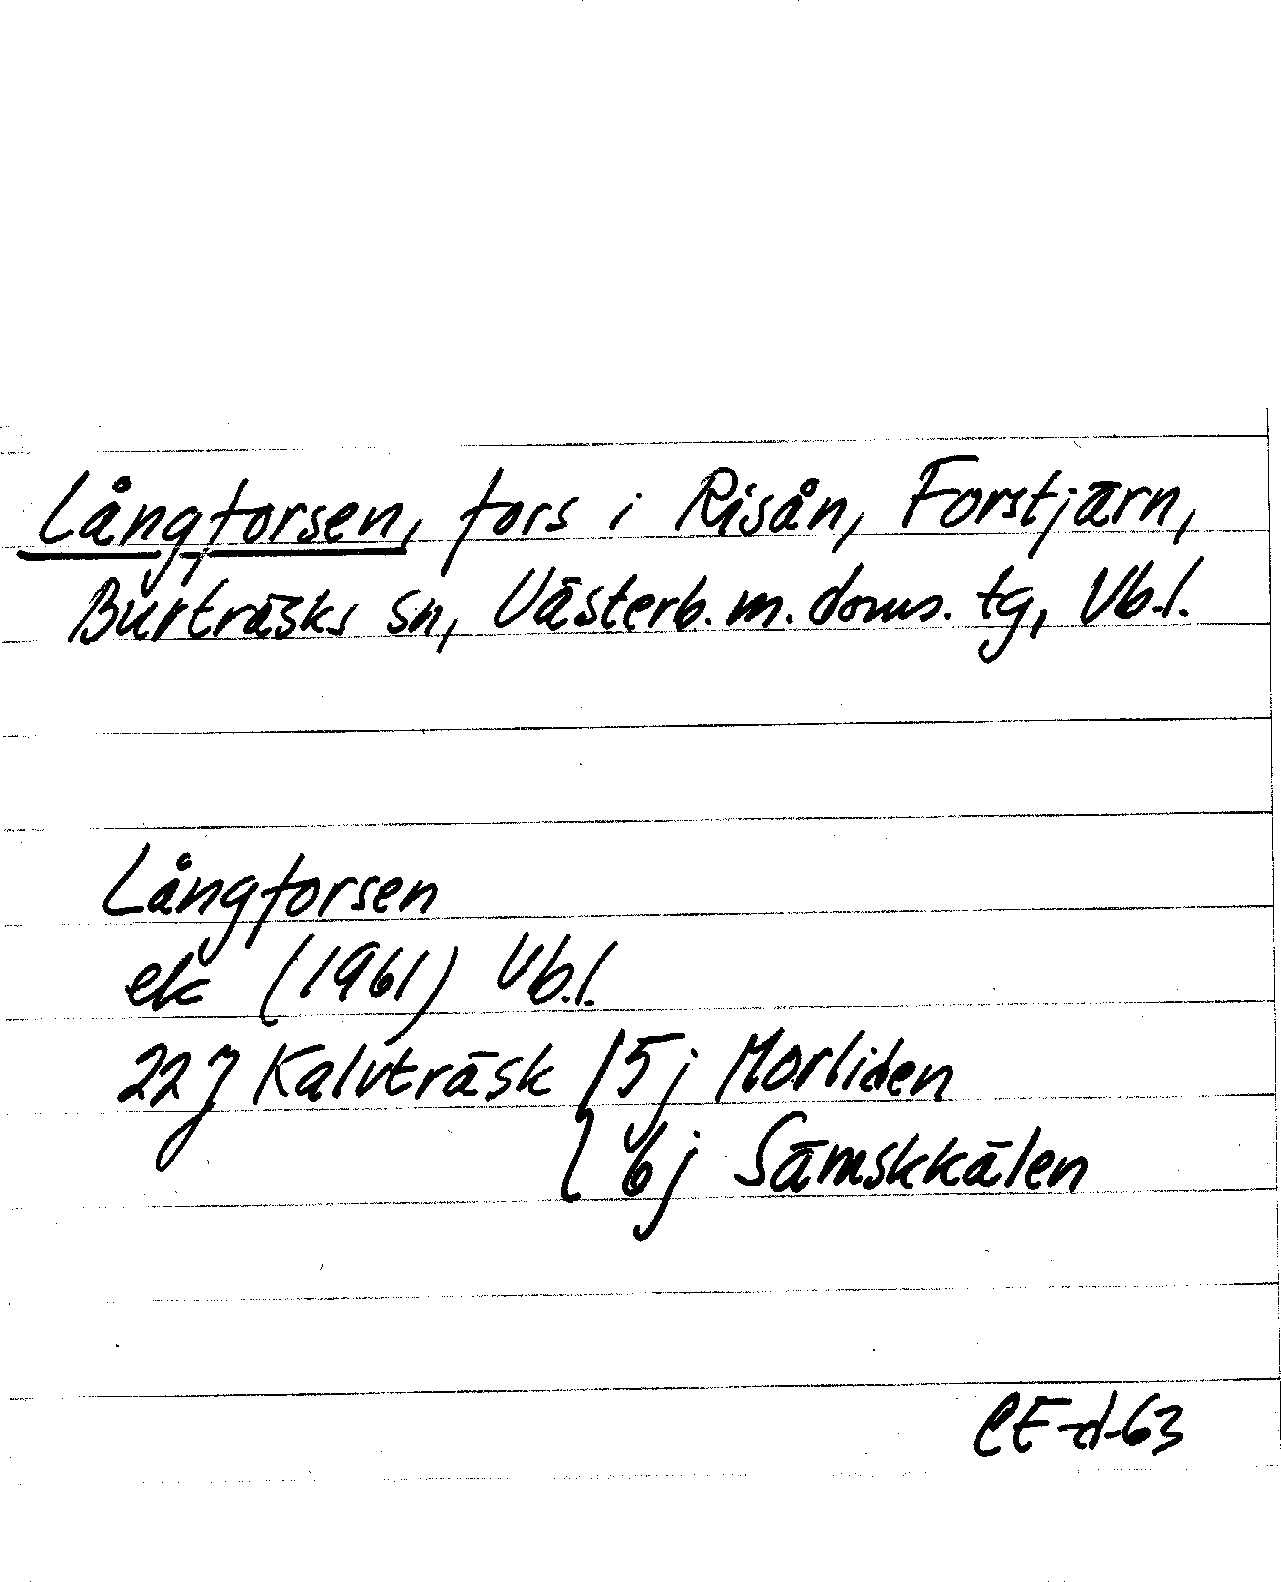 Långforsen, fors i Risån, Forstjärn,
Burträsks sn, Västerb. m. doms. tg, Vb.l.
Långforsen
ek (1961) Vb.l.
22J Kalvträsk 5j Morliden
6j Sämskkälen
CE-d-63